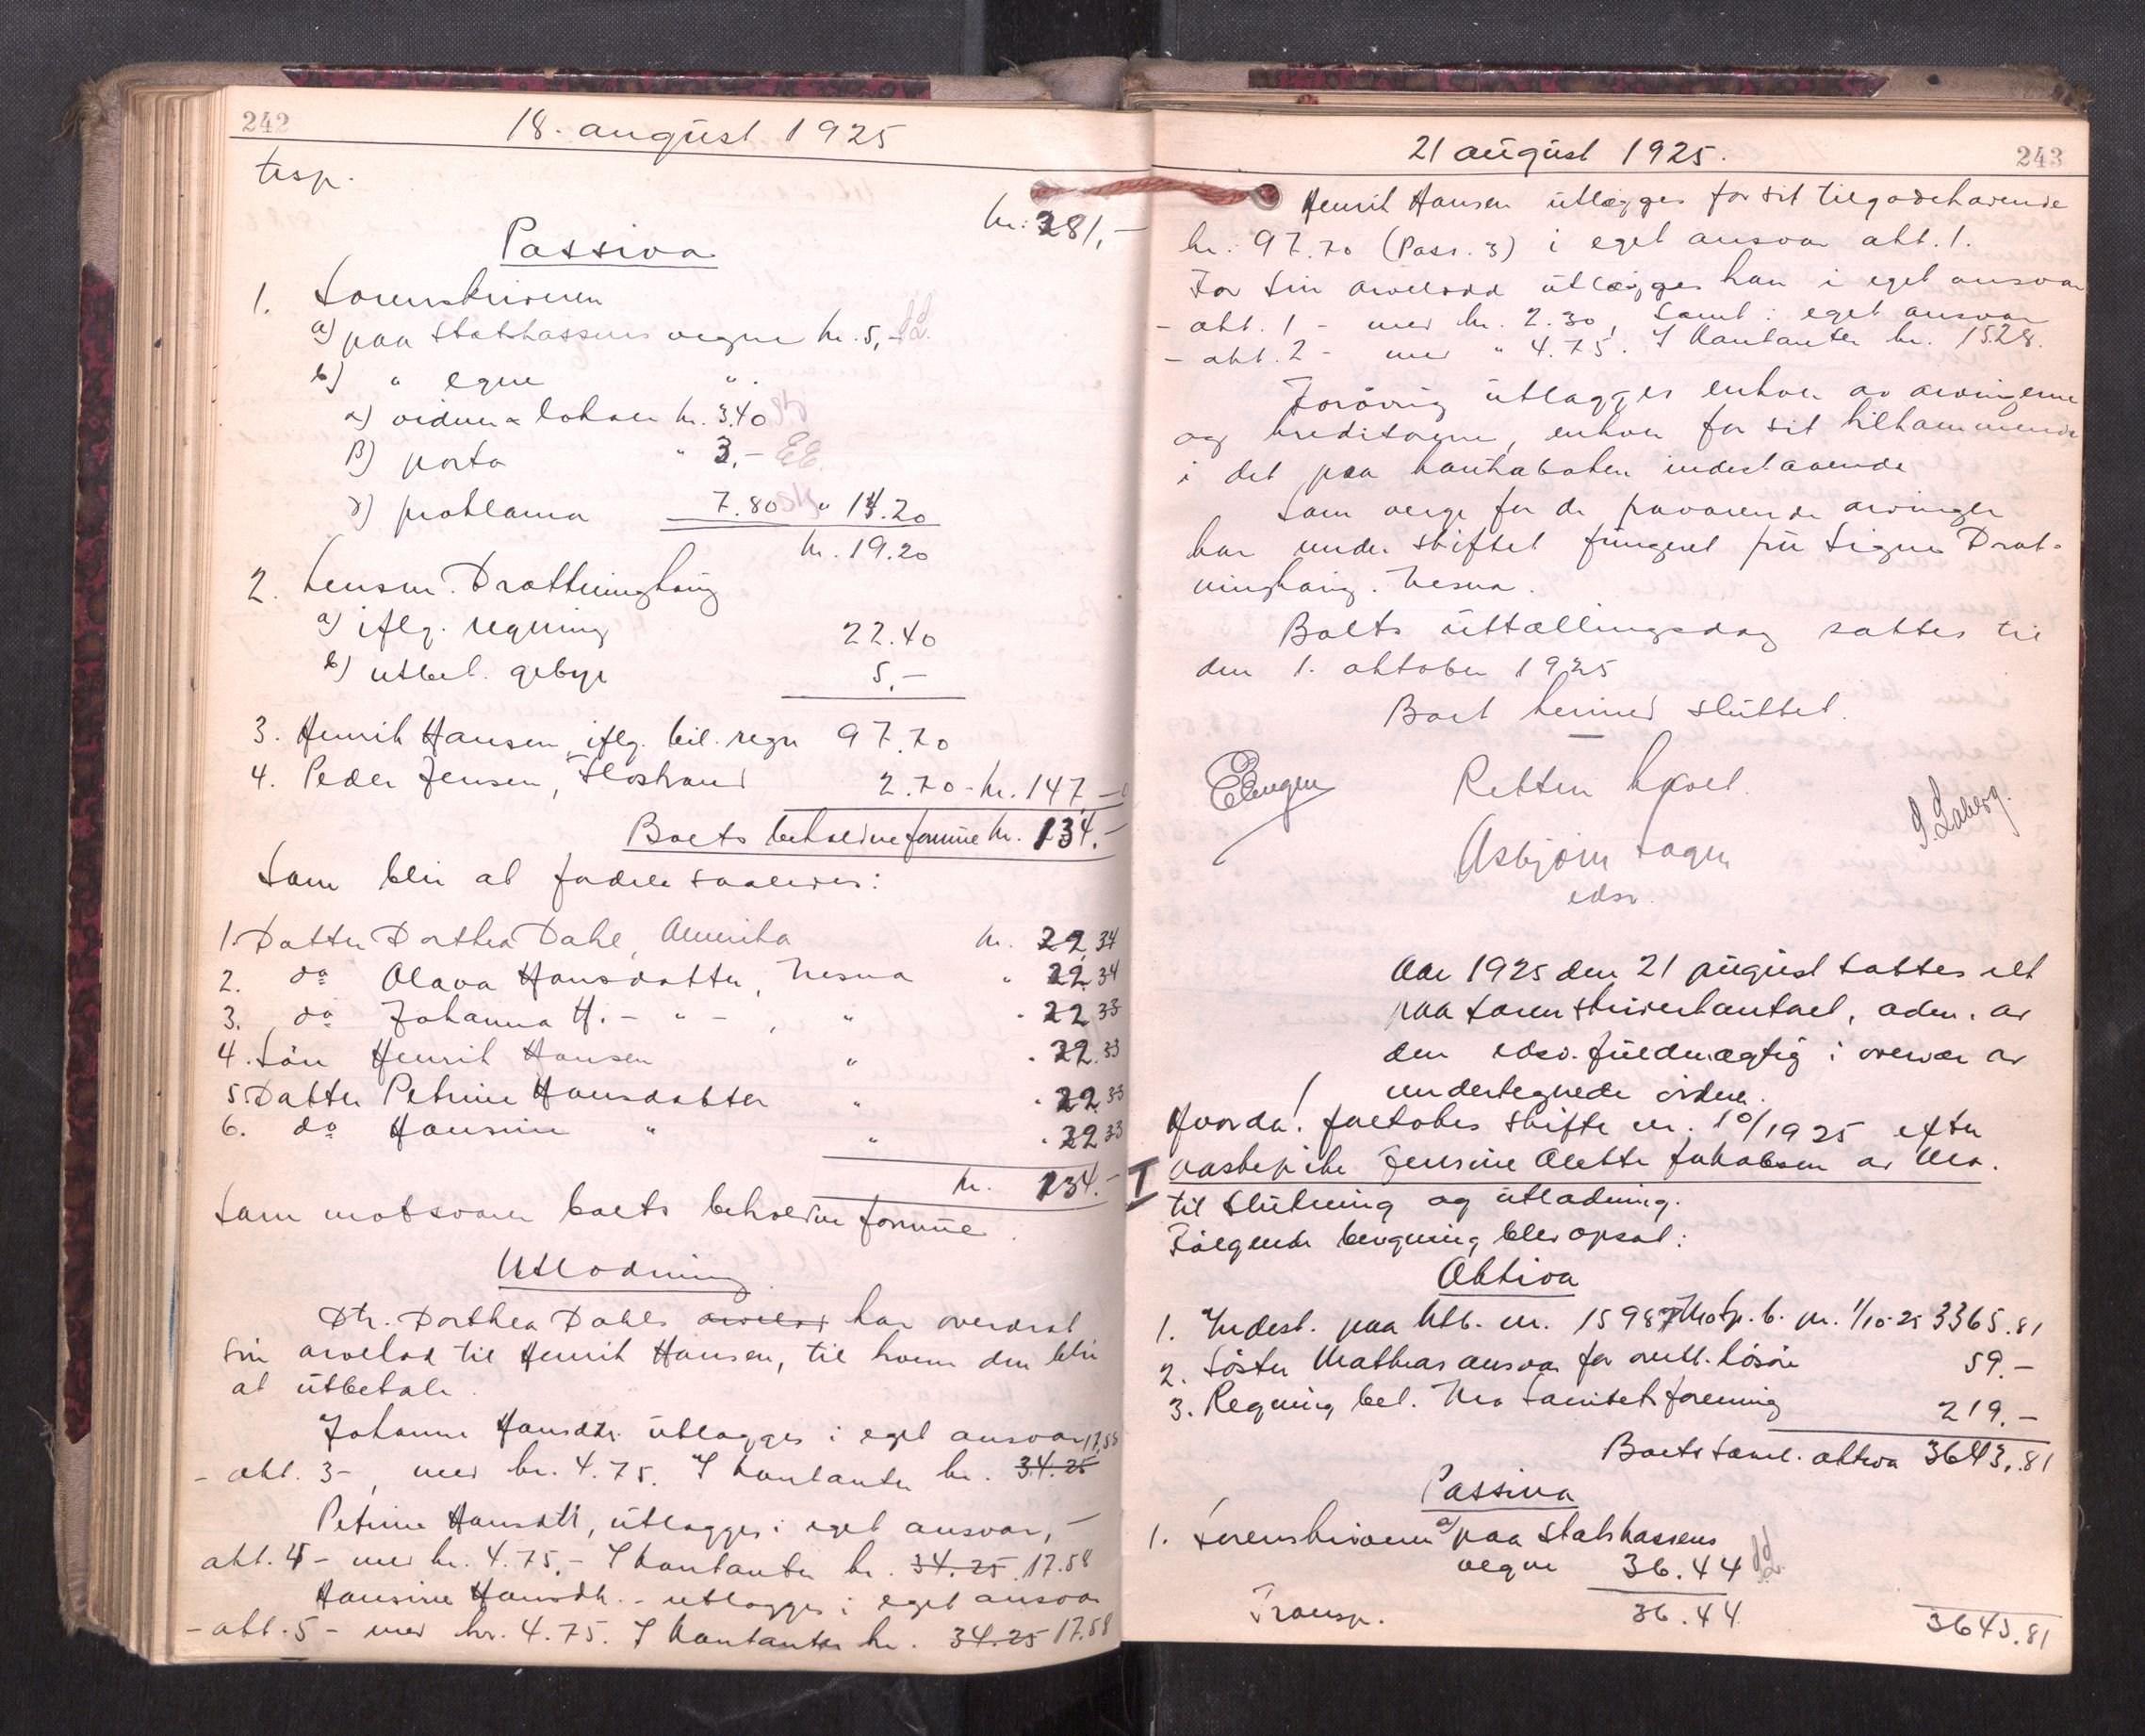 242
18. august 1925
trsp.
kr. 281,-
Passiva
1. Sorenskriveren
a) paa statskassens vegne kr. 5,-
b) " egne "
α) vidner & lokale kr. 3.40
β) porto " 3.-
γ) proklama 7.80 " 14.20
kr. 19.20
2. Lensm. Drottninghaug
a) iflg. regning 22.40
b) utbet. gebyr 5.-
3. Henrik Hansen, iflg. bil. regn 97.70
4. Peder Jensen, Flostrand 2.70 - kr. 147.-
Boets beholdne formue kr. 134.-
Som blir at fordele saaledes:
1. Datter Dorthea Dahl, Amerika kr. 22,34
2. do Olava Hansdatter, Nesna " 22.34
3. do Johanna H. - " - , " " 22.33
4. Søn Henrik Hansen " " 22.33
5. Datter Petrine Hansdatter " " 22.33
6. do Hansine " " " 22.33
kr. 134.-
Som motsvarer boets beholdne formue.
Utlodning
Dtr. Dorthea Dahls arvelod har overdrat
sin arvelod til Henrik Hansen, til hvem den blir
at utbetale.
Johanne Hansdtr. utlægges i eget ansvar 17,58
- akt. 3 -, med kr. 4.75. I kontanter kr. 34.25
Petrine Hansdtr, utlægges i eget ansvar, -
akt. 4 - med kr. 4.75. - I kontanter kr. 34.25 17.58
Hansine Hansdtr. - utlægges i eget ansvar
- akt. 5 - med kr. 4.75. I kontanter kr. 34.25 17.58
21 august 1925.
243
Henrik Hansen utlægges for sit tilgodehavende
kr. 97.70 (Pass. 3) i eget ansvar akt. 1.
For sin arvelodd utlægges han i eget ansvar
- akt. 1 - med kr. 2.30, samt i eget ansvar
- akt. 2 - med " 4.75. I kontanter kr. 15.28.
Forøvrig utlægges enhver av arvingerne
og kreditorerne, enhver for sit tilkommende
i det paa bankaboken indestaaende
Som verge for de fraværende arvinger
har under skiftet fungeret fru Signe Drot-
ninghaug. Nesna.
Boets uttællingsdag sattes til
den 1. oktober 1925
Boet hermed sluttet.
Retten hævet.
Asbjørn
edsv.
Aar 1925 den 21 august sattes ret
paa sorenskriverkontoret, adm. av
den edsv. fuldmægtig i overvær av
undertegnede vidner.
Hvorda! foretokes skifte nr. 10/1925 efter
vaskepike Jensine Alette Jakobsen av Mo.
til slutning og utlodning.
Følgende beregning blev opsat:
Aktiva
1. Indest. paa bkb. nr. 15987 Mo sp. b. pr. 1/10-25 3365.81
2. Søster Mathias ansvar for overt. løsøre 59.-
3. Regning bet. Mo Sanitetsforening 219.-
Boets saml. aktiva 3643.81
Passiva
1. Sorenskriveren a) paa statskassens
vegne 36.44
Transp. 36.44 3643.81